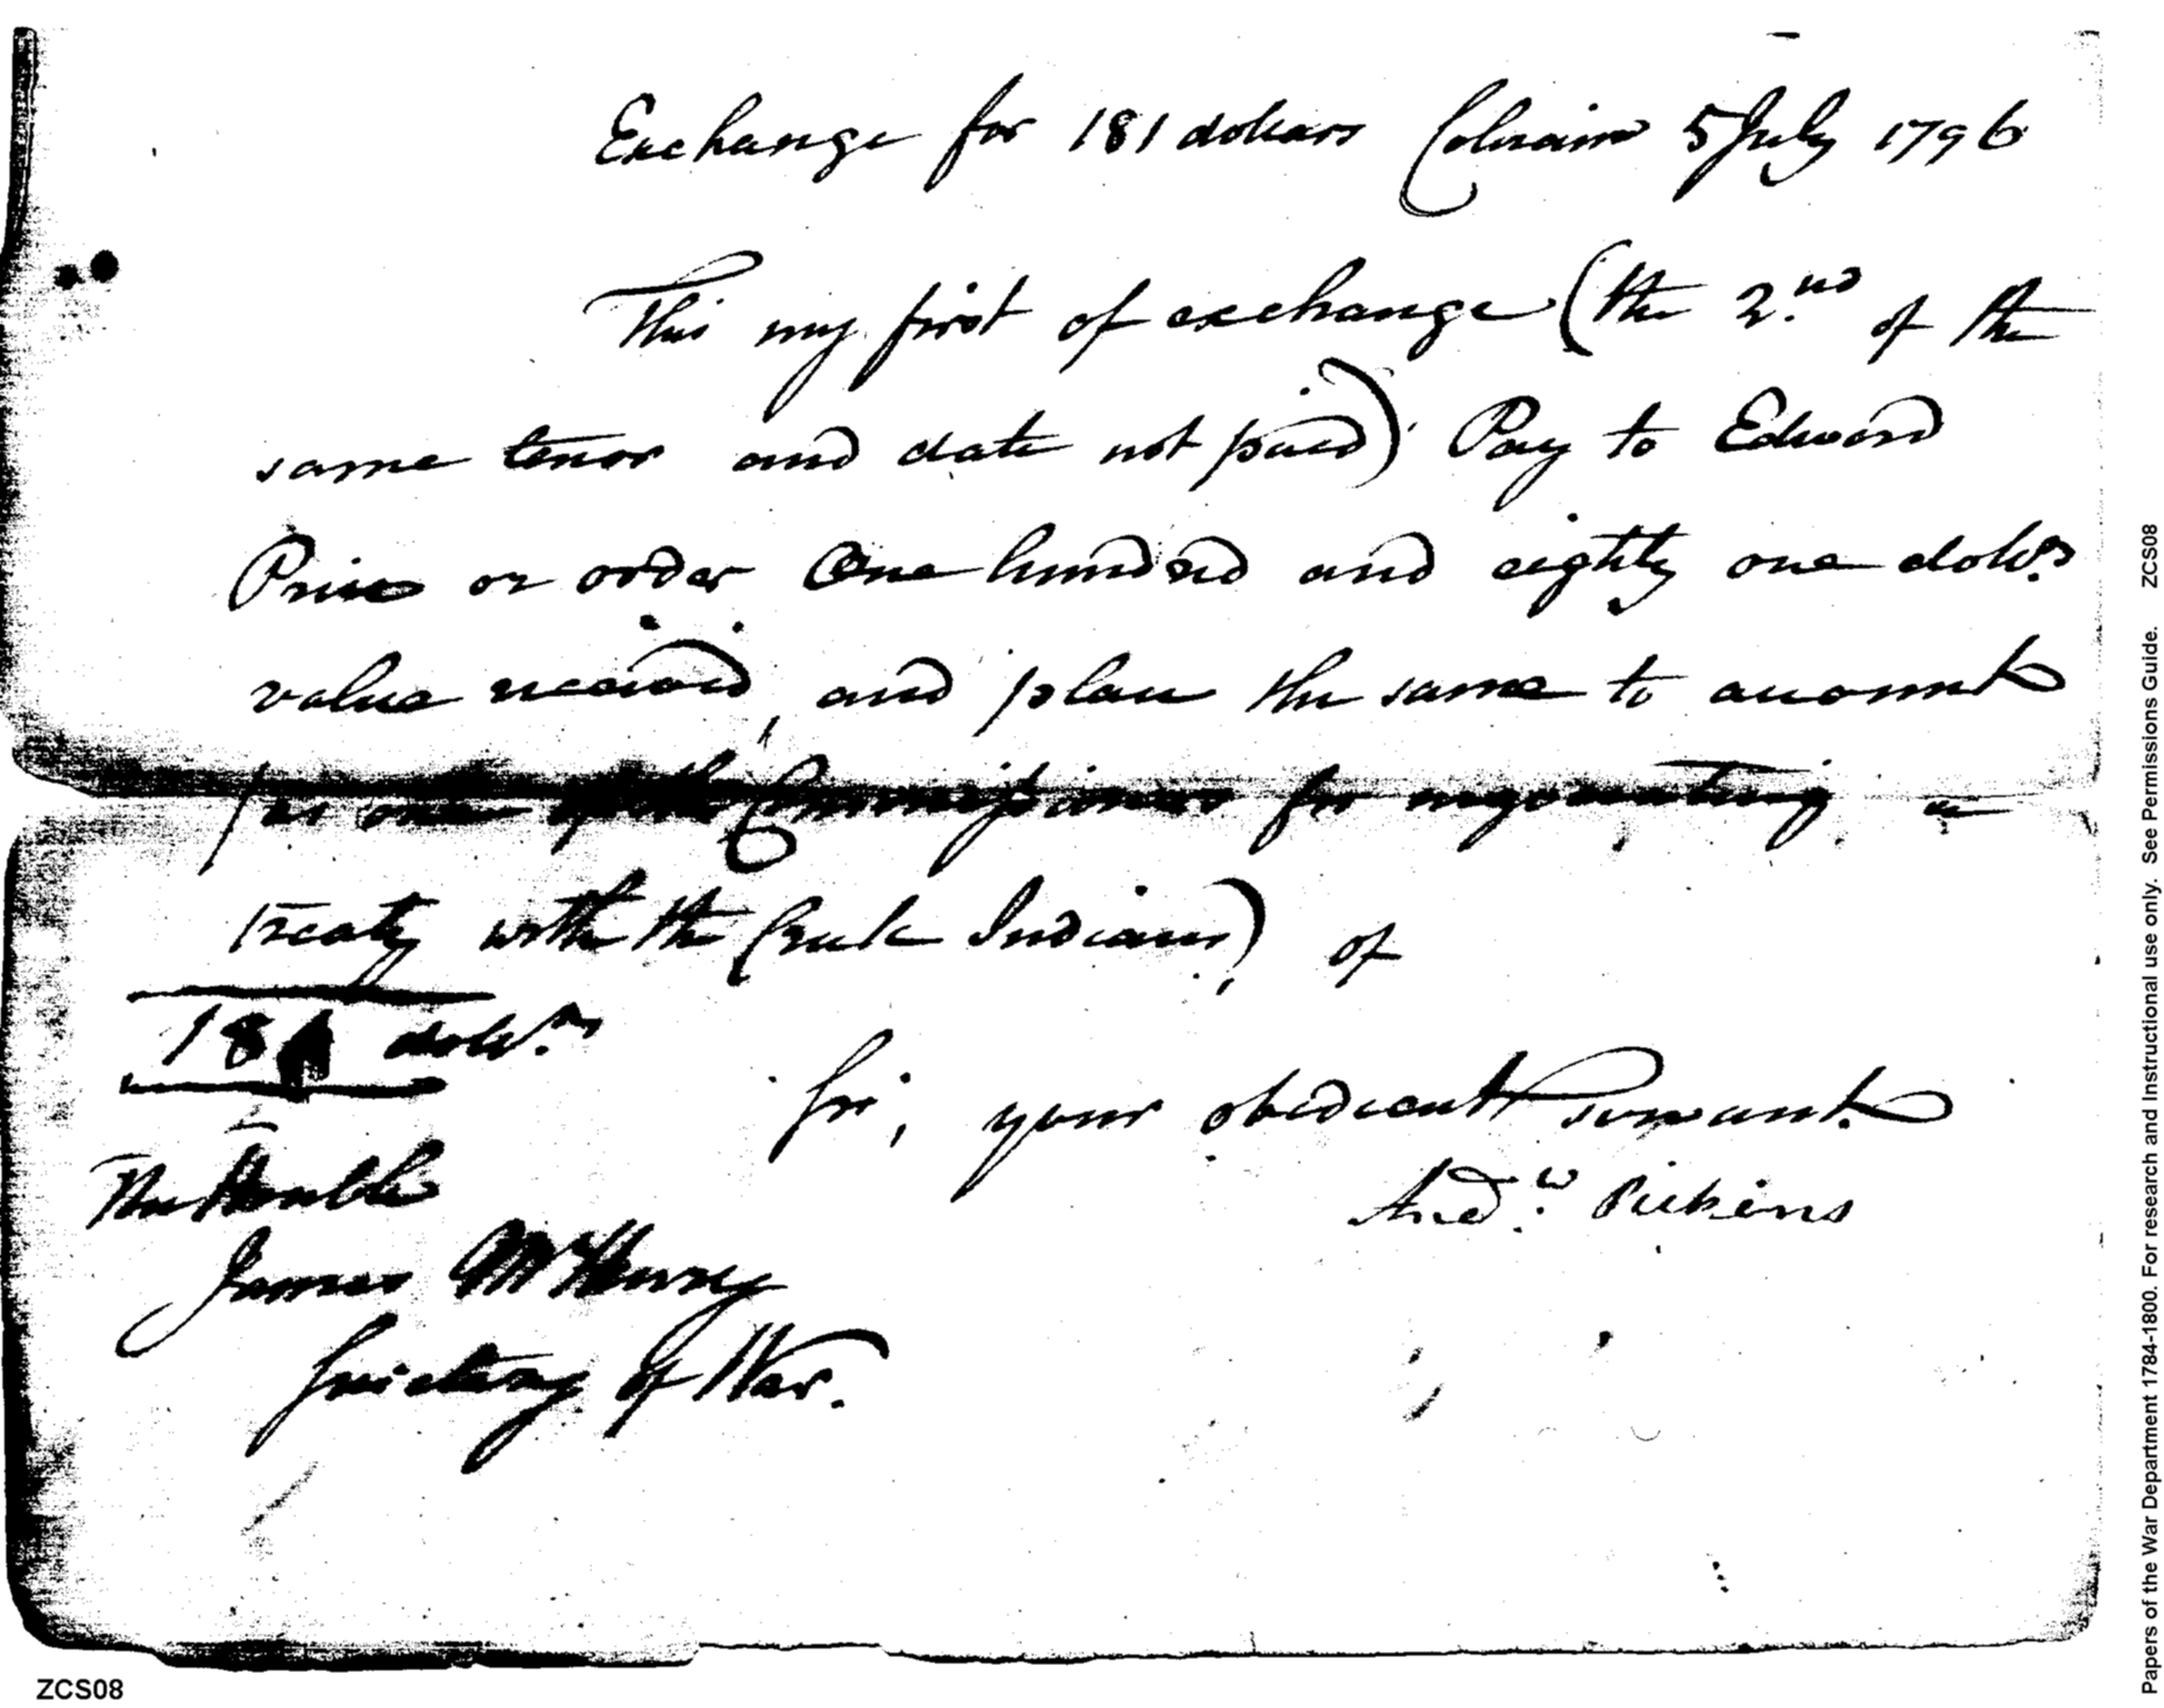 Exchange for 181 dollars Colerain 5 July 1796
This my first of exchange (the 2.nd of the
same tenor and date not paid) Pay to Edward
Price or order One hundred and eighty one doll.rs
value received, and place the same to account
(as one of the Commissioners for negociating a
treaty with the Creek Indians), of
181 doll.rs
Sir, your obedient servant.
And.w Pickens
The Honble
James McHenry
Secretary of War.
ZCS08
Papers of the War Department 1784-1800. For research and Instructional use only. See Permissions Guide. ZCS08